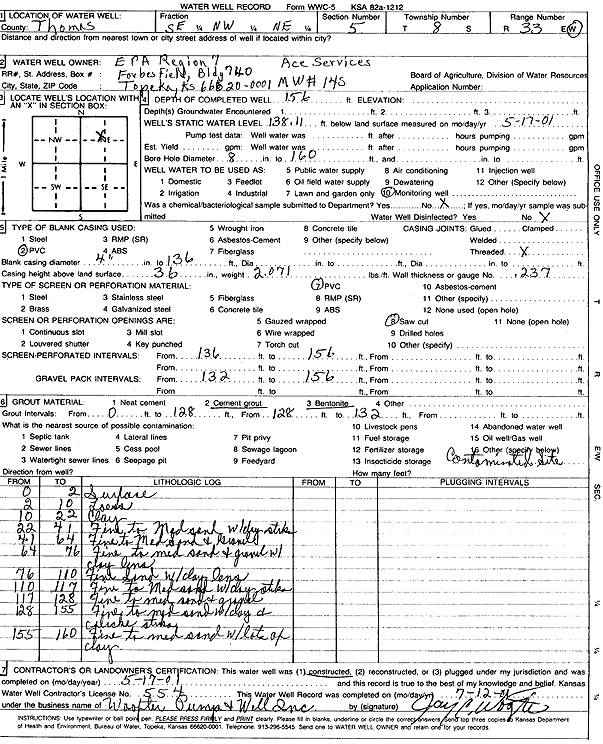 WATER WELL RECORD Form WWC-5 KSA 82a-1212
1 LOCATION OF WATER WELL: Fraction Section Number Township Number Range Number
County: Thomas SE ¼ NW ¼ NE ¼ 5 T 8 S R 33 E W
Distance and direction from nearest town or city street address of well if located within city?
2 WATER WELL OWNER: EPA Region 7 Ace Services
RR#, St. Address, Box # : Forbes Field, Bldg 740 Board of Agriculture, Division of Water Resources
City, State, ZIP Code : Topeka, Ks 66620-0001 MW# 14S Application Number:
3 LOCATE WELL'S LOCATION WITH AN "X" IN SECTION BOX:
N
NW NE
W E
SW SE
S
1 Mile
4 DEPTH OF COMPLETED WELL 156 ft. ELEVATION:
Depth(s) Groundwater Encountered 1. ft. 2. ft. 3. ft.
WELL'S STATIC WATER LEVEL 138.11 ft. below land surface measured on mo/day/yr 5-17-01
Pump test data: Well water was ft. after hours pumping gpm
Est. Yield gpm: Well water was ft. after hours pumping gpm
Bore Hole Diameter 8 in. to 160 ft., and in. to ft.
WELL WATER TO BE USED AS: 5 Public water supply 8 Air conditioning 11 Injection well
1 Domestic 3 Feedlot 6 Oil field water supply 9 Dewatering 12 Other (Specify below)
2 Irrigation 4 Industrial 7 Lawn and garden only 10 Monitoring well
Was a chemical/bacteriological sample submitted to Department? Yes No X; If yes, mo/day/yr sample was submitted
Water Well Disinfected? Yes No X
5 TYPE OF BLANK CASING USED: 5 Wrought iron 8 Concrete tile CASING JOINTS: Glued Clamped
1 Steel 3 RMP (SR) 6 Asbestos-Cement 9 Other (specify below) Welded
2 PVC 4 ABS 7 Fiberglass Threaded X
Blank casing diameter 4" in. to 136 ft., Dia in. to ft., Dia in. to ft.
Casing height above land surface 36 in., weight 2.071 lbs./ft. Wall thickness or gauge No. .237
TYPE OF SCREEN OR PERFORATION MATERIAL: 7 PVC 10 Asbestos-cement
1 Steel 3 Stainless steel 5 Fiberglass 8 RMP (SR) 11 Other (specify)
2 Brass 4 Galvanized steel 6 Concrete tile 9 ABS 12 None used (open hole)
SCREEN OR PERFORATION OPENINGS ARE: 5 Gauzed wrapped 8 Saw cut 11 None (open hole)
1 Continuous slot 3 Mill slot 6 Wire wrapped 9 Drilled holes
2 Louvered shutter 4 Key punched 7 Torch cut 10 Other (specify)
SCREEN-PERFORATED INTERVALS: From 136 ft. to 156 ft., From ft. to ft.
From ft. to ft., From ft. to ft.
GRAVEL PACK INTERVALS: From 132 ft. to 156 ft., From ft. to ft.
From ft. to ft., From ft. to ft.
6 GROUT MATERIAL: 1 Neat cement 2 Cement grout 3 Bentonite 4 Other
Grout Intervals: From 0 ft. to 128 ft., From 128 ft. to 132 ft., From ft. to ft.
What is the nearest source of possible contamination: 10 Livestock pens 14 Abandoned water well
1 Septic tank 4 Lateral lines 7 Pit privy 11 Fuel storage 15 Oil well/Gas well
2 Sewer lines 5 Cess pool 8 Sewage lagoon 12 Fertilizer storage 16 Other (specify below)
3 Watertight sewer lines 6 Seepage pit 9 Feedyard 13 Insecticide storage Contaminated Site
Direction from well? How many feet?
FROM TO LITHOLOGIC LOG FROM TO PLUGGING INTERVALS
0 2 Surface
2 10 Loess
10 22 Clay
22 41 Fine to Med sand w/clay striks
41 64 Fine to Med sand & Gravel
64 76 Fine to med sand & gravel w/
clay lens
76 110 Fine Sand w/clay lens
110 117 Fine to Med sand w/clay striks
117 128 Fine to med sand & gravel
128 155 Fine to med sand w/clay &
caliche striks
155 160 Fine to med sand w/lots of
clay
7 CONTRACTOR'S OR LANDOWNER'S CERTIFICATION: This water well was (1) constructed, (2) reconstructed, or (3) plugged under my jurisdiction and was
completed on (mo/day/year) 5-17-01 and this record is true to the best of my knowledge and belief. Kansas
Water Well Contractor's License No. 554 This Water Well Record was completed on (mo/day/yr) 7-12-01
under the business name of Woofter Pump & Well Inc by (signature) Jay C Woofter
INSTRUCTIONS: Use typewriter or ball point pen. PLEASE PRESS FIRMLY and PRINT clearly. Please fill in blanks, underline or circle the correct answers. Send top three copies to Kansas Department
of Health and Environment, Bureau of Water, Topeka, Kansas 66620-0001. Telephone: 913-296-5545. Send one to WATER WELL OWNER and retain one for your records.
OFFICE USE ONLY
T
R
E/W
SEC.
¼
¼
¼